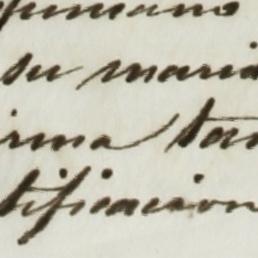 su maria
irma tan
tificacion